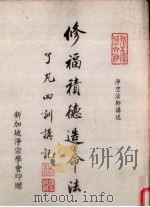 修福積德造命法
淨空法師講述
了凡四訓講記
新加坡淨宗學會印贈